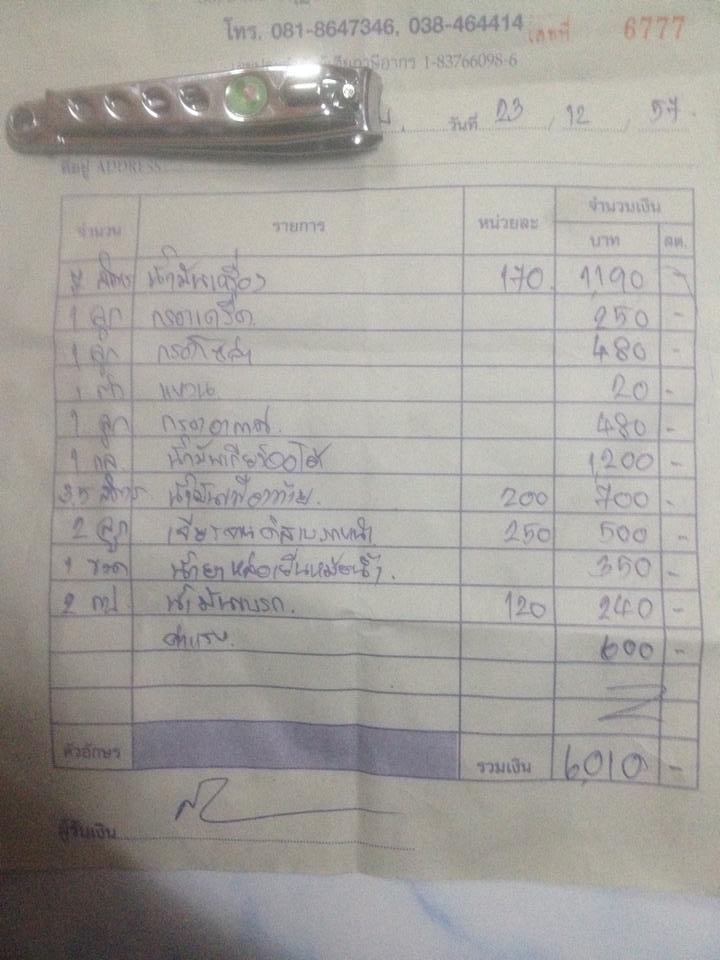 โทร. 081-8647346, 038-464414 เลขที่ 6777
ภาษีอากร 1-83766098-6
วันที่ 23 / 12 / 57
ที่อยู่ ADDRESS
จำนวน รายการ หน่วยละ จำนวนเงิน
บาท สต.
7 ลิตร น้ำมันเครื่อง 170 1190 -
1 ลูก กรองเครื่อง 250 -
1 ลูก กรองโซล่า 480 -
1 ตัว แหวน 20 -
1 ลูก กรองอากาศ 480 -
1 กล น้ำมันเกียร์ออโต้ 1,200 -
3.5 ลิตร น้ำมันเฟืองท้าย 200 700 -
2 ลูก เจียรจานดิสเบรคหน้า 250 500 -
1 ขวด น้ำยาหล่อเย็นหม้อน้ำ 350 -
2 กป น้ำมันเบรก 120 240 -
ค่าแรง 600 -
ตัวอักษร รวมเงิน 6,010 -
ผู้รับเงิน